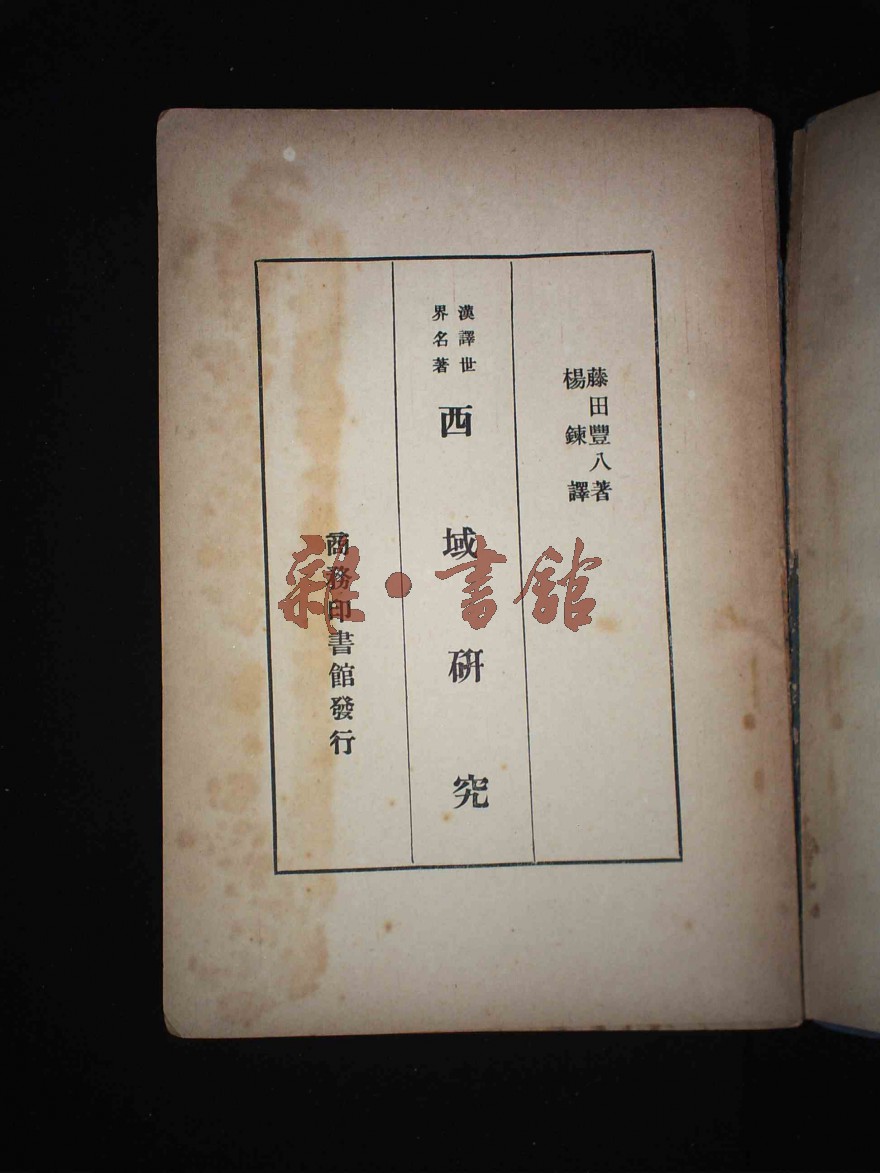 藤田豐八著
楊鍊譯
漢譯世
界名著
西域研究
商務印書館發行
雜·書館